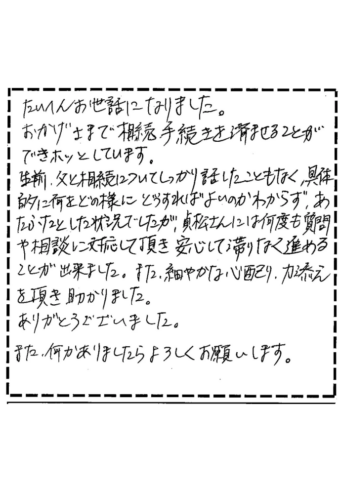 たいへんお世話になりました。
おかげさまで相続手続きを済ませることが
できホッとしています。
生前、父と相続についてしっかり話したこともなく、具体
的に何をどの様にどうすればよいのかわからず、あ
たふたとした状況でしたが、貞松さんには何度も質問
や相談に対応して頂き安心して滞りなく進める
ことが出来ました。また、細やかな心配り、力添え
を頂き助かりました。
ありがとうございました。
また、何かありましたらよろしくお願いします。